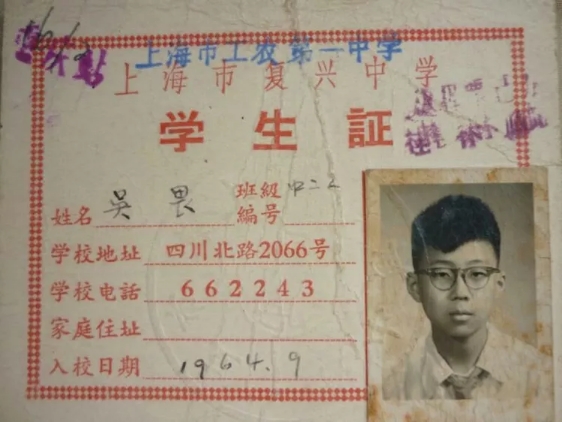 上海市工农第一中学
上海市复兴中学
学生証
姓名 吳畏 班級編号 中二2
学校地址 四川北路2066号
学校电話 662243
家庭住址
入校日期 1964.9